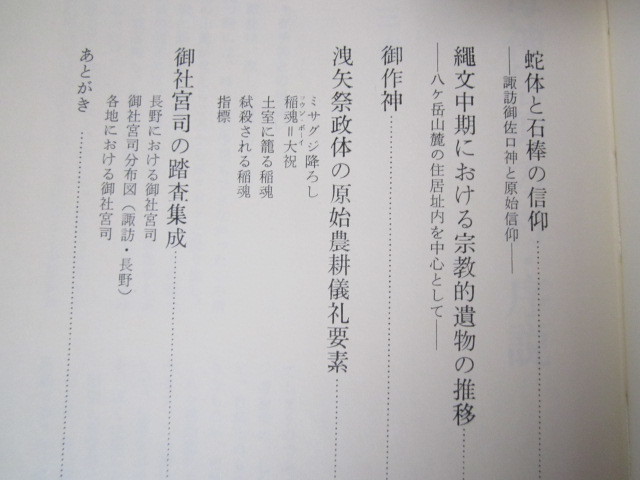 蛇体と石棒の信仰
──諏訪御佐口神と原始信仰──
縄文中期における宗教的遺物の推移
──八ケ岳山麓の住居址内を中心として──
御作神
洩矢祭政体の原始農耕儀礼要素
ミサグジ降ろし
稲魂＝大祝
ソウジン・ボーイ
土室に籠る稲魂
弑殺される稲魂
指標
御社宮司の踏査集成
長野における御社宮司
御社宮司分布図（諏訪・長野）
各地における御社宮司
あとがき